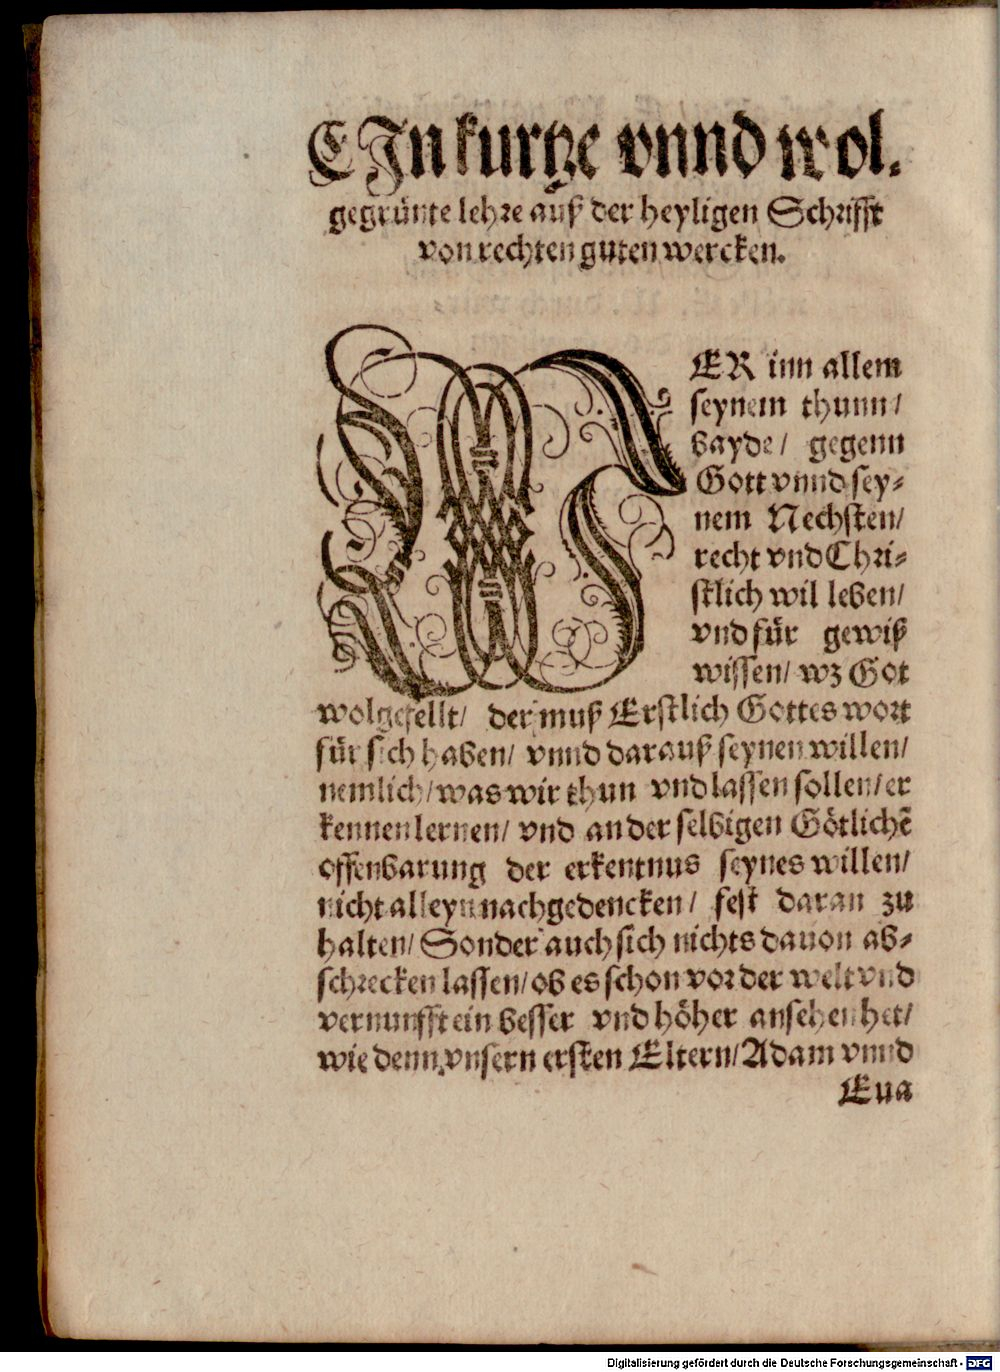 EJn kurtze vnnd wol-
gegrünte lehre auß der heyligen Schrifft
von rechten guten wercken.
WER inn allem
seynem thunn/
bayde/ gegenn
Gott vnnd sey-
nem Nechsten/
recht vnd Chri-
stlich wil leben/
vnd für gewiß
wissen/ wz Got
wolgefellt/ der muß Erstlich Gottes wort
für sich haben/ vnnd darauß seynen willen/
nemlich/ was wir thun vnd lassen sollen/ er
kennen lernen/ vnd an der selbigen Götlichē
offenbarung der erkentnus seynes willen/
nicht alleyn nachgedencken/ fest daran zu
halten/ Sonder auch sich nichts dauon ab-
schrecken lassen/ ob es schon vor der welt vnd
vernunfft ein besser vnd höher ansehen het/
wie denn vnsern ersten Eltern/ Adam vnnd
Eua
Digitalisierung gefördert durch die Deutsche Forschungsgemeinschaft - DFG